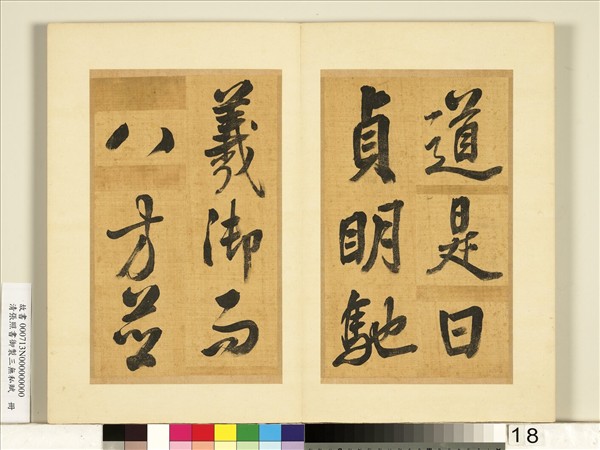 道是日
貞明馳
羲御而
八方並
故書 000713N000000000
清張照書御製三無私賦 冊
18